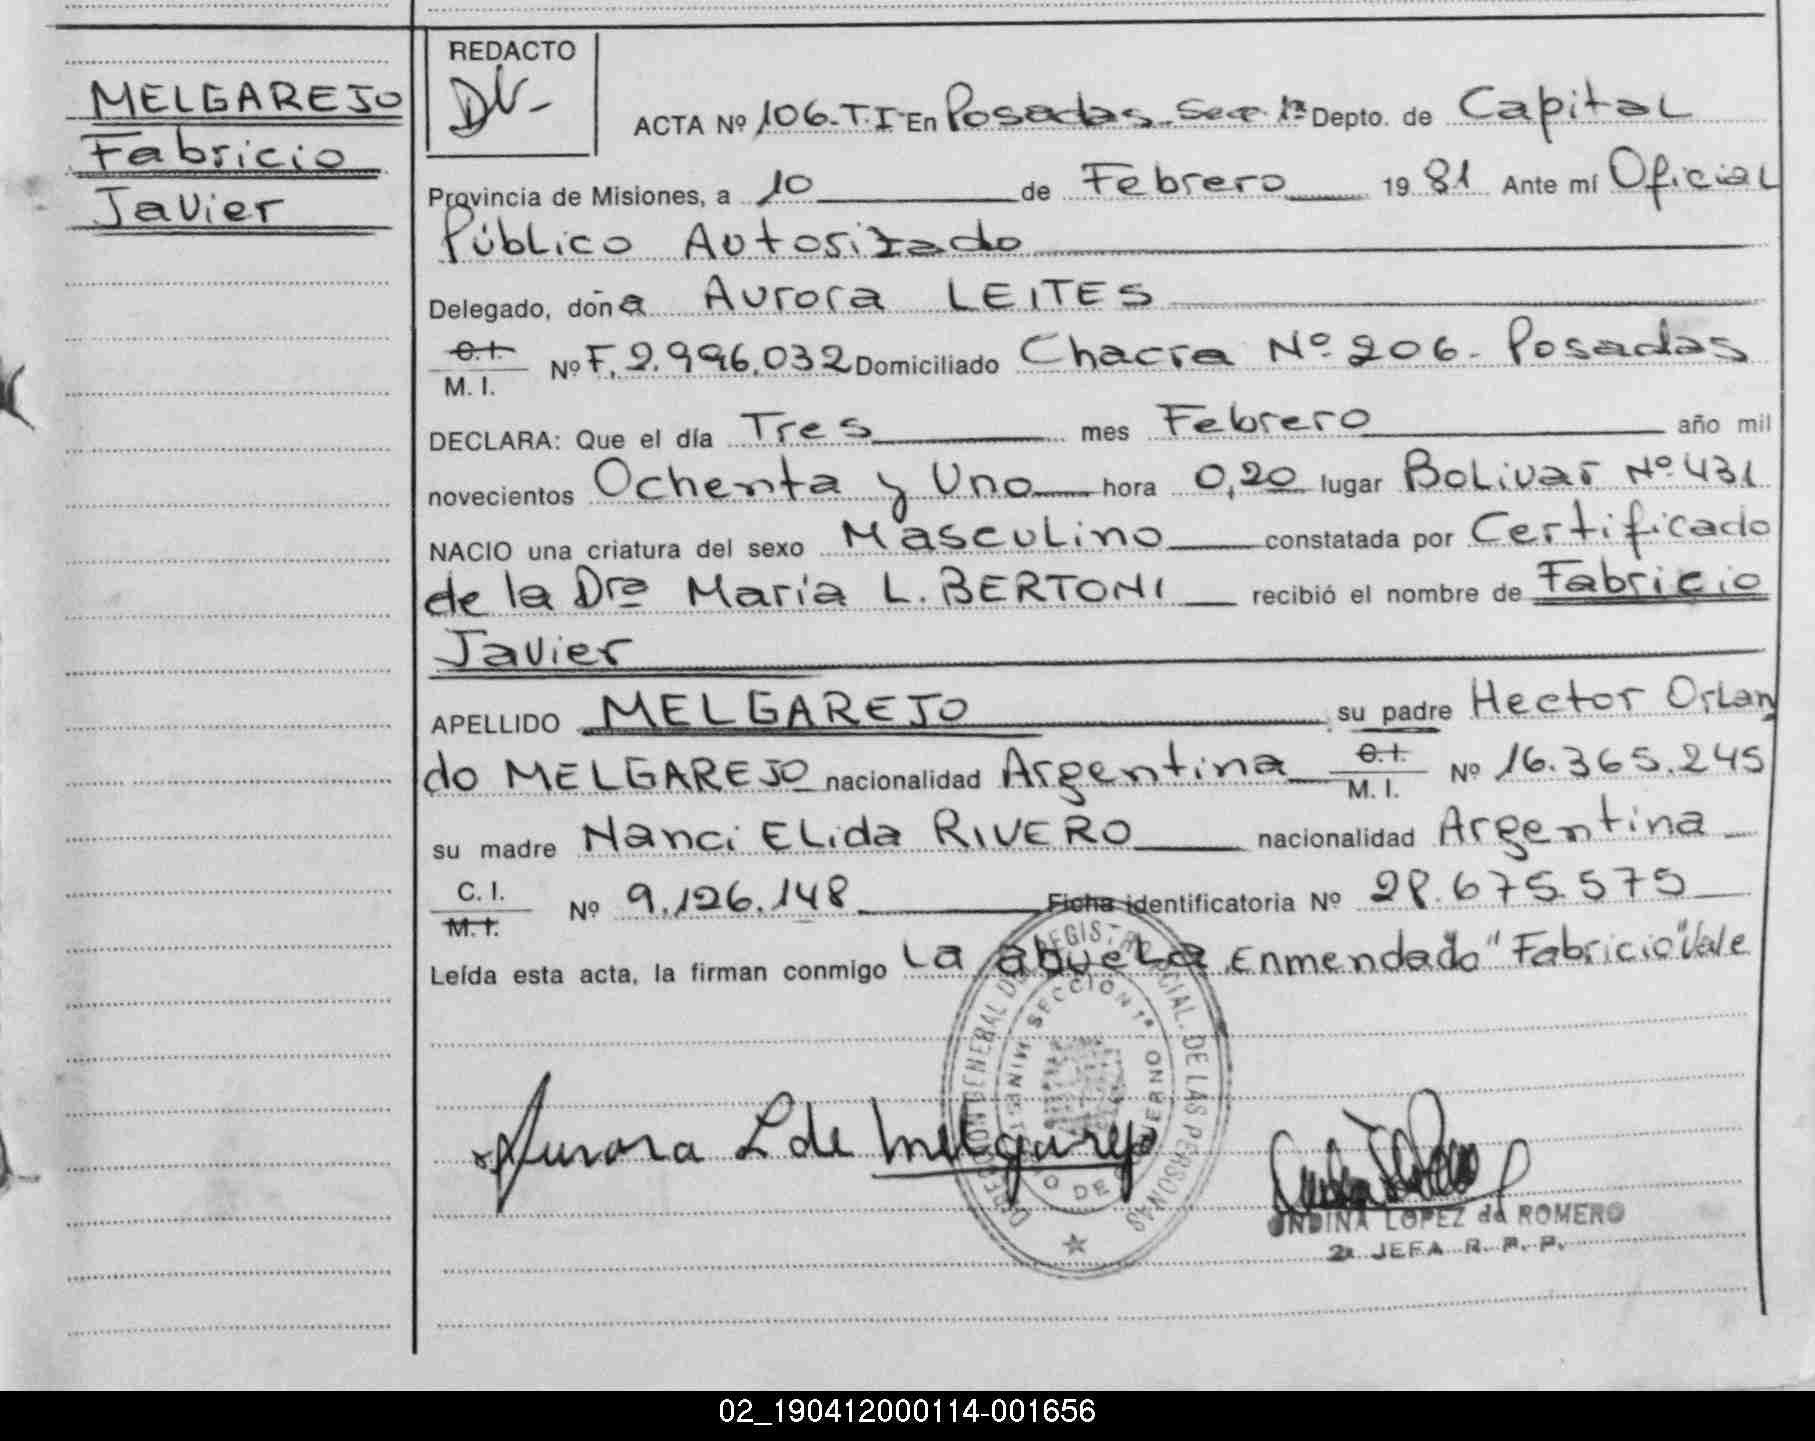 MELGAREJO
Fabricio
Javier
REDACTO
ACTA Nº 106-T.I En Posadas-Secc 1ª Depto. de Capital
Provincia de Misiones, a 10 de Febrero 19 81 Ante mí Oficial
Público Autorizado
Delegado, doña Aurora LEITES
C.I.
M. I. Nº F. 2.996.032 Domiciliado Chacra Nº 206. Posadas
DECLARA: Que el día Tres mes Febrero año mil
novecientos Ochenta y Uno hora 0,20 lugar Bolivar Nº 431
NACIO una criatura del sexo Masculino constatada por Certificado
de la Dra María L. BERTONI recibió el nombre de Fabricio
Javier
APELLIDO MELGAREJO su padre Hector Orlan
do MELGAREJO nacionalidad Argentina C.I. M. I. Nº 16.365.245
su madre Nanci ELida RIVERO nacionalidad Argentina
C. I. M. I. Nº 9.126.148 Ficha identificatoria Nº 28.675.575
Leída esta acta, la firman conmigo La abueLa Enmendado "Fabricio" Vale
DIRECCION GENERAL DEL REGISTRO PROVINCIAL DE LAS PERSONAS
SECCION 1ª
MINISTERIO DE GOBIERNO
Aurora L de Melgarejo
ONDINA LOPEZ de ROMERO
2a JEFA R. P. P.
02_190412000114-001656